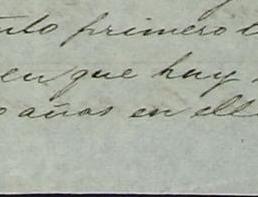 primero
en que hay
años en ell